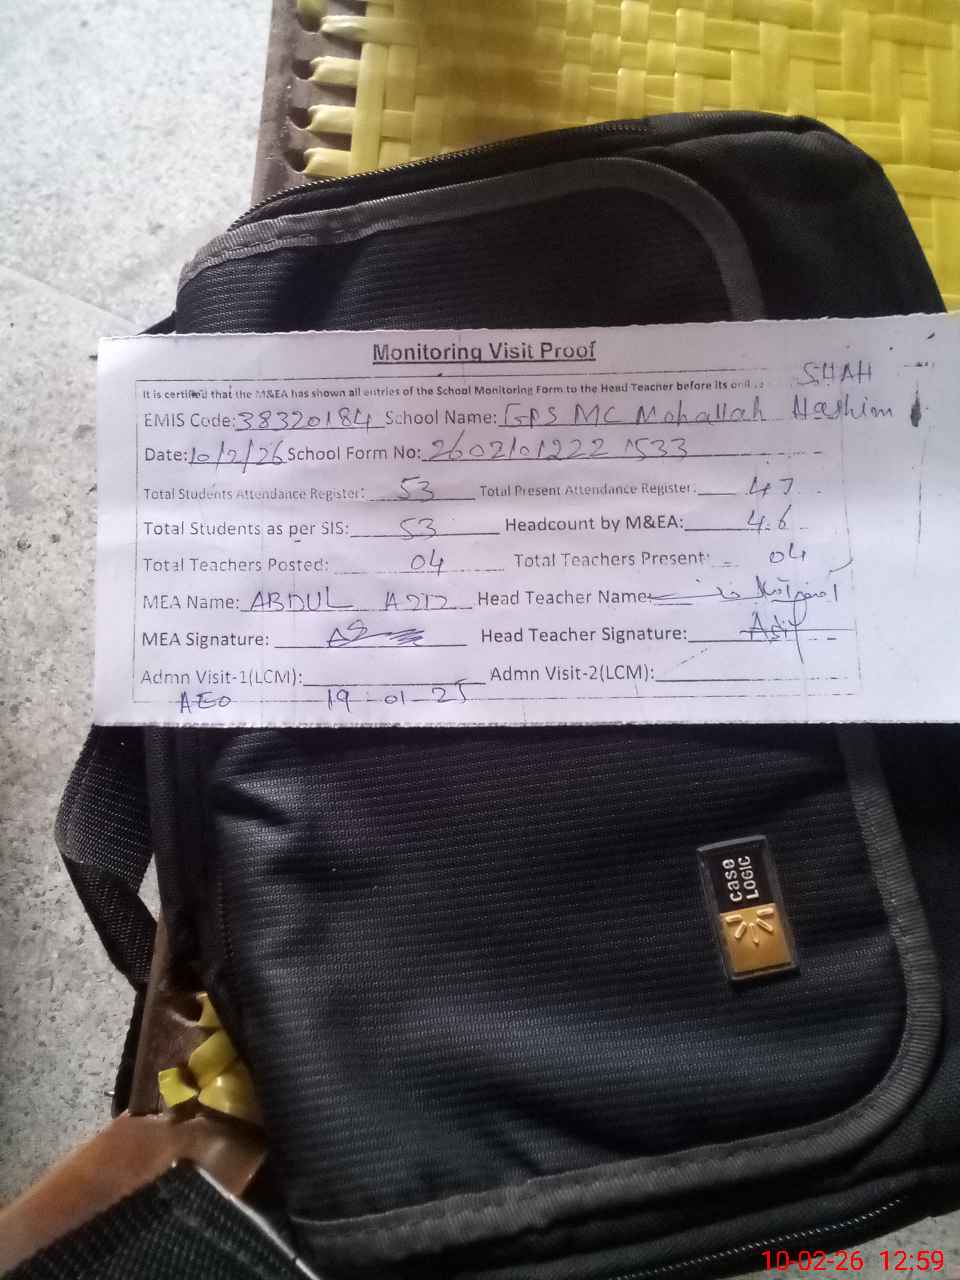 Monitoring Visit Proof
It is certified that the M&EA has shown all entries of the School Monitoring Form to the Head Teacher before its
SHAH
EMIS Code: 38320184 School Name: GPS MC Mohallah Hashim
Date: 10/2/26 School Form No: 2602101222 1533
Total Students Attendance Register: 53 Total Present Attendance Register: 47
Total Students as per SIS: 53 Headcount by M&EA: 46
Total Teachers Posted: 04 Total Teachers Present: 04
MEA Name: ABDUL AZIZ Head Teacher Name:
MEA Signature: Head Teacher Signature: Asif
Admn Visit-1(LCM): Admn Visit-2(LCM):
AEO 19-01-25
case
LOGIC
10-02-26 12:59